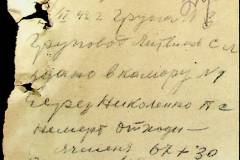 VI 42 г Група № 3
Групповой Литвинов С Л
здано в камору № 1
через Николенко П с
немерт отходы
ячменя 67 + 30